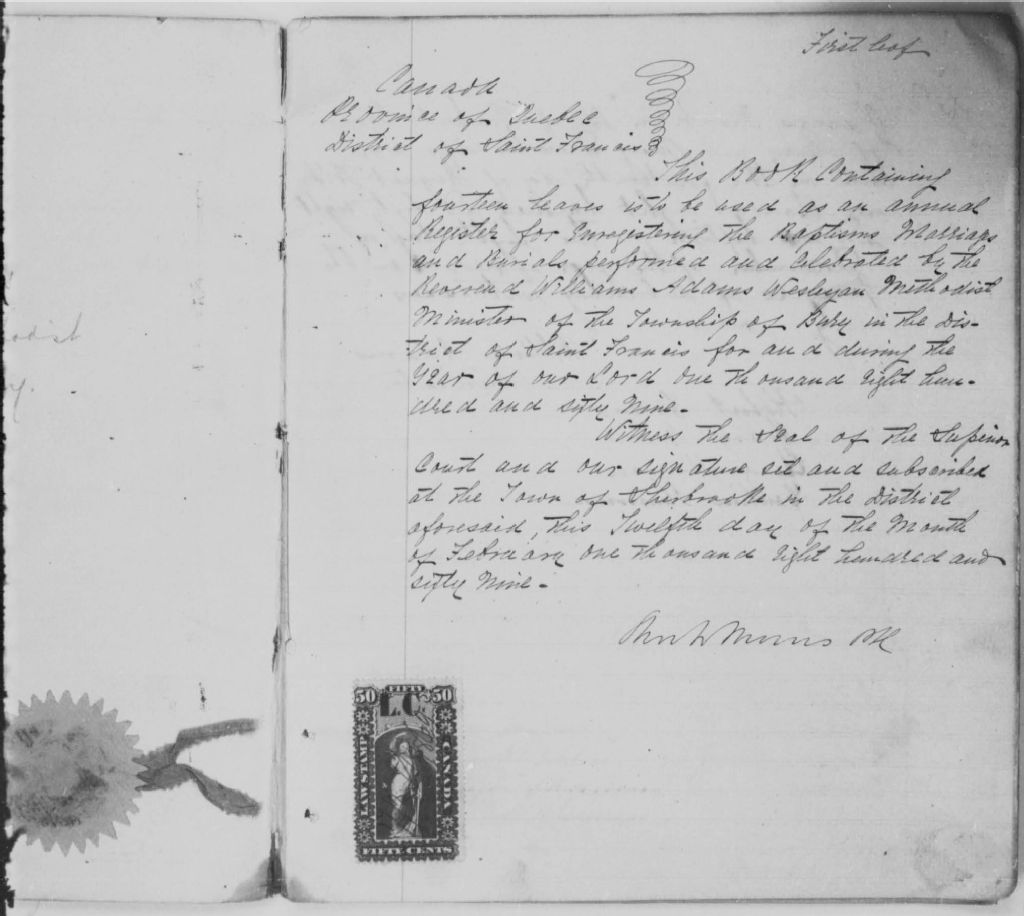 First leaf
Canada
Province of Quebec
District of Saint Francis
This Book Containing
fourteen leaves is to be used as an annual
Register for Enregistering the Baptisms Marriages
and Burials performed and Celebrated by the
Reverend Williams Adams Wesleyan Methodist
Minister of the Township of Bury in the Dis-
trict of Saint Francis for and during the
Year of our Lord One thousand Eight hun-
dred and sixty Nine.
Witness the Seal of the Superior
Court and our signature set and subscribed
at the Town of Sherbrooke in the District
aforesaid, this Twelfth day of the Month
of February One thousand Eight hundred and
sixty Nine.
Morris
50 FIFTY 50
L.C.
LAW STAMP
CANADA
FIFTY CENTS